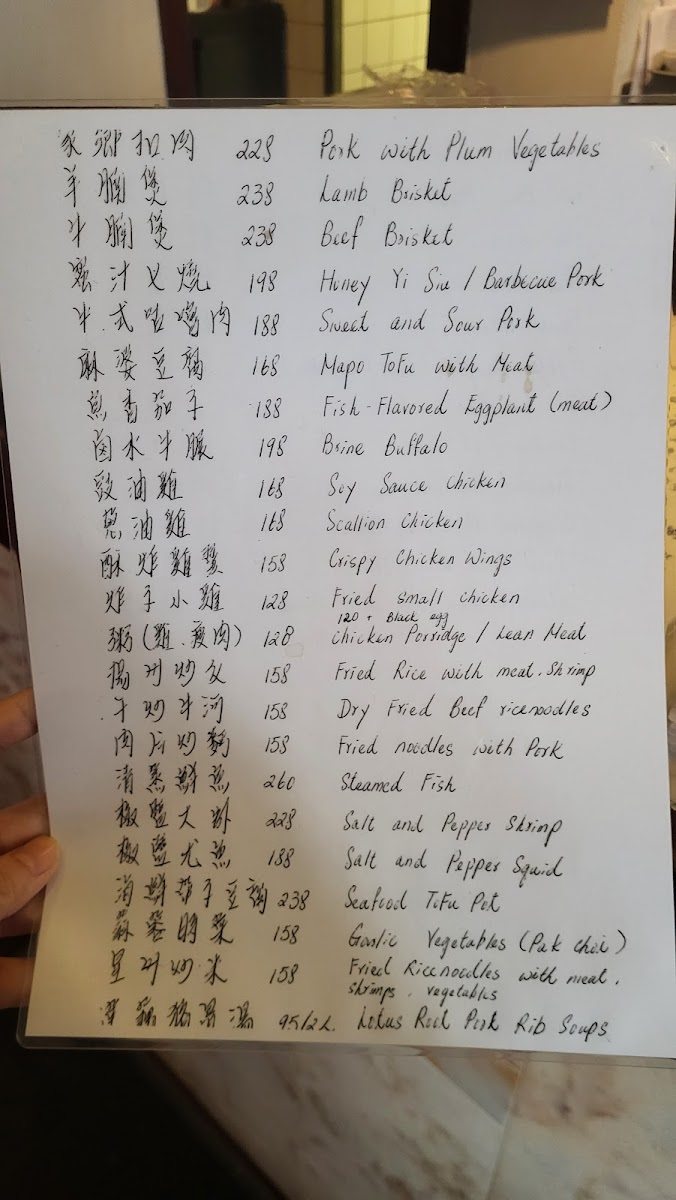 家鄉扣肉 228 Pork with Plum Vegetables
羊腩煲 238 Lamb Brisket
牛腩煲 238 Beef Brisket
蜜汁叉燒 198 Honey Yi Siu / Barbecue Pork
中式咕嚕肉 188 Sweet and Sour Pork
麻婆豆腐 168 Mapo Tofu with Meat
魚香茄子 188 Fish-Flavored Eggplant (meat)
卤水牛腱 198 Brine Buffalo
豉油雞 168 Soy Sauce Chicken
葱油雞 168 Scallion Chicken
酥炸雞翼 158 Crispy Chicken Wings
炸子小雞 128 Fried small chicken
120 + Black egg
粥(雞.瘦肉) 128 chicken Porridge / Lean Meat
揚州炒飯 158 Fried Rice with meat.Shrimp
干炒牛河 158 Dry Fried Beef ricenoodles
肉片炒麵 158 Fried noodles with Pork
清蒸鮮魚 260 Steamed Fish
椒鹽大虾 228 Salt and Pepper Shrimp
椒鹽尤魚 188 Salt and Pepper Squid
海鮮带子豆腐 238 Seafood Tofu Pot
蒜蓉時菜 158 Garlic Vegetables (Pak choi)
星州炒米 158 Fried Ricenoodles with meat.
shrimps. vegetables
95/2L. Lotus Root Pork Rib Soups